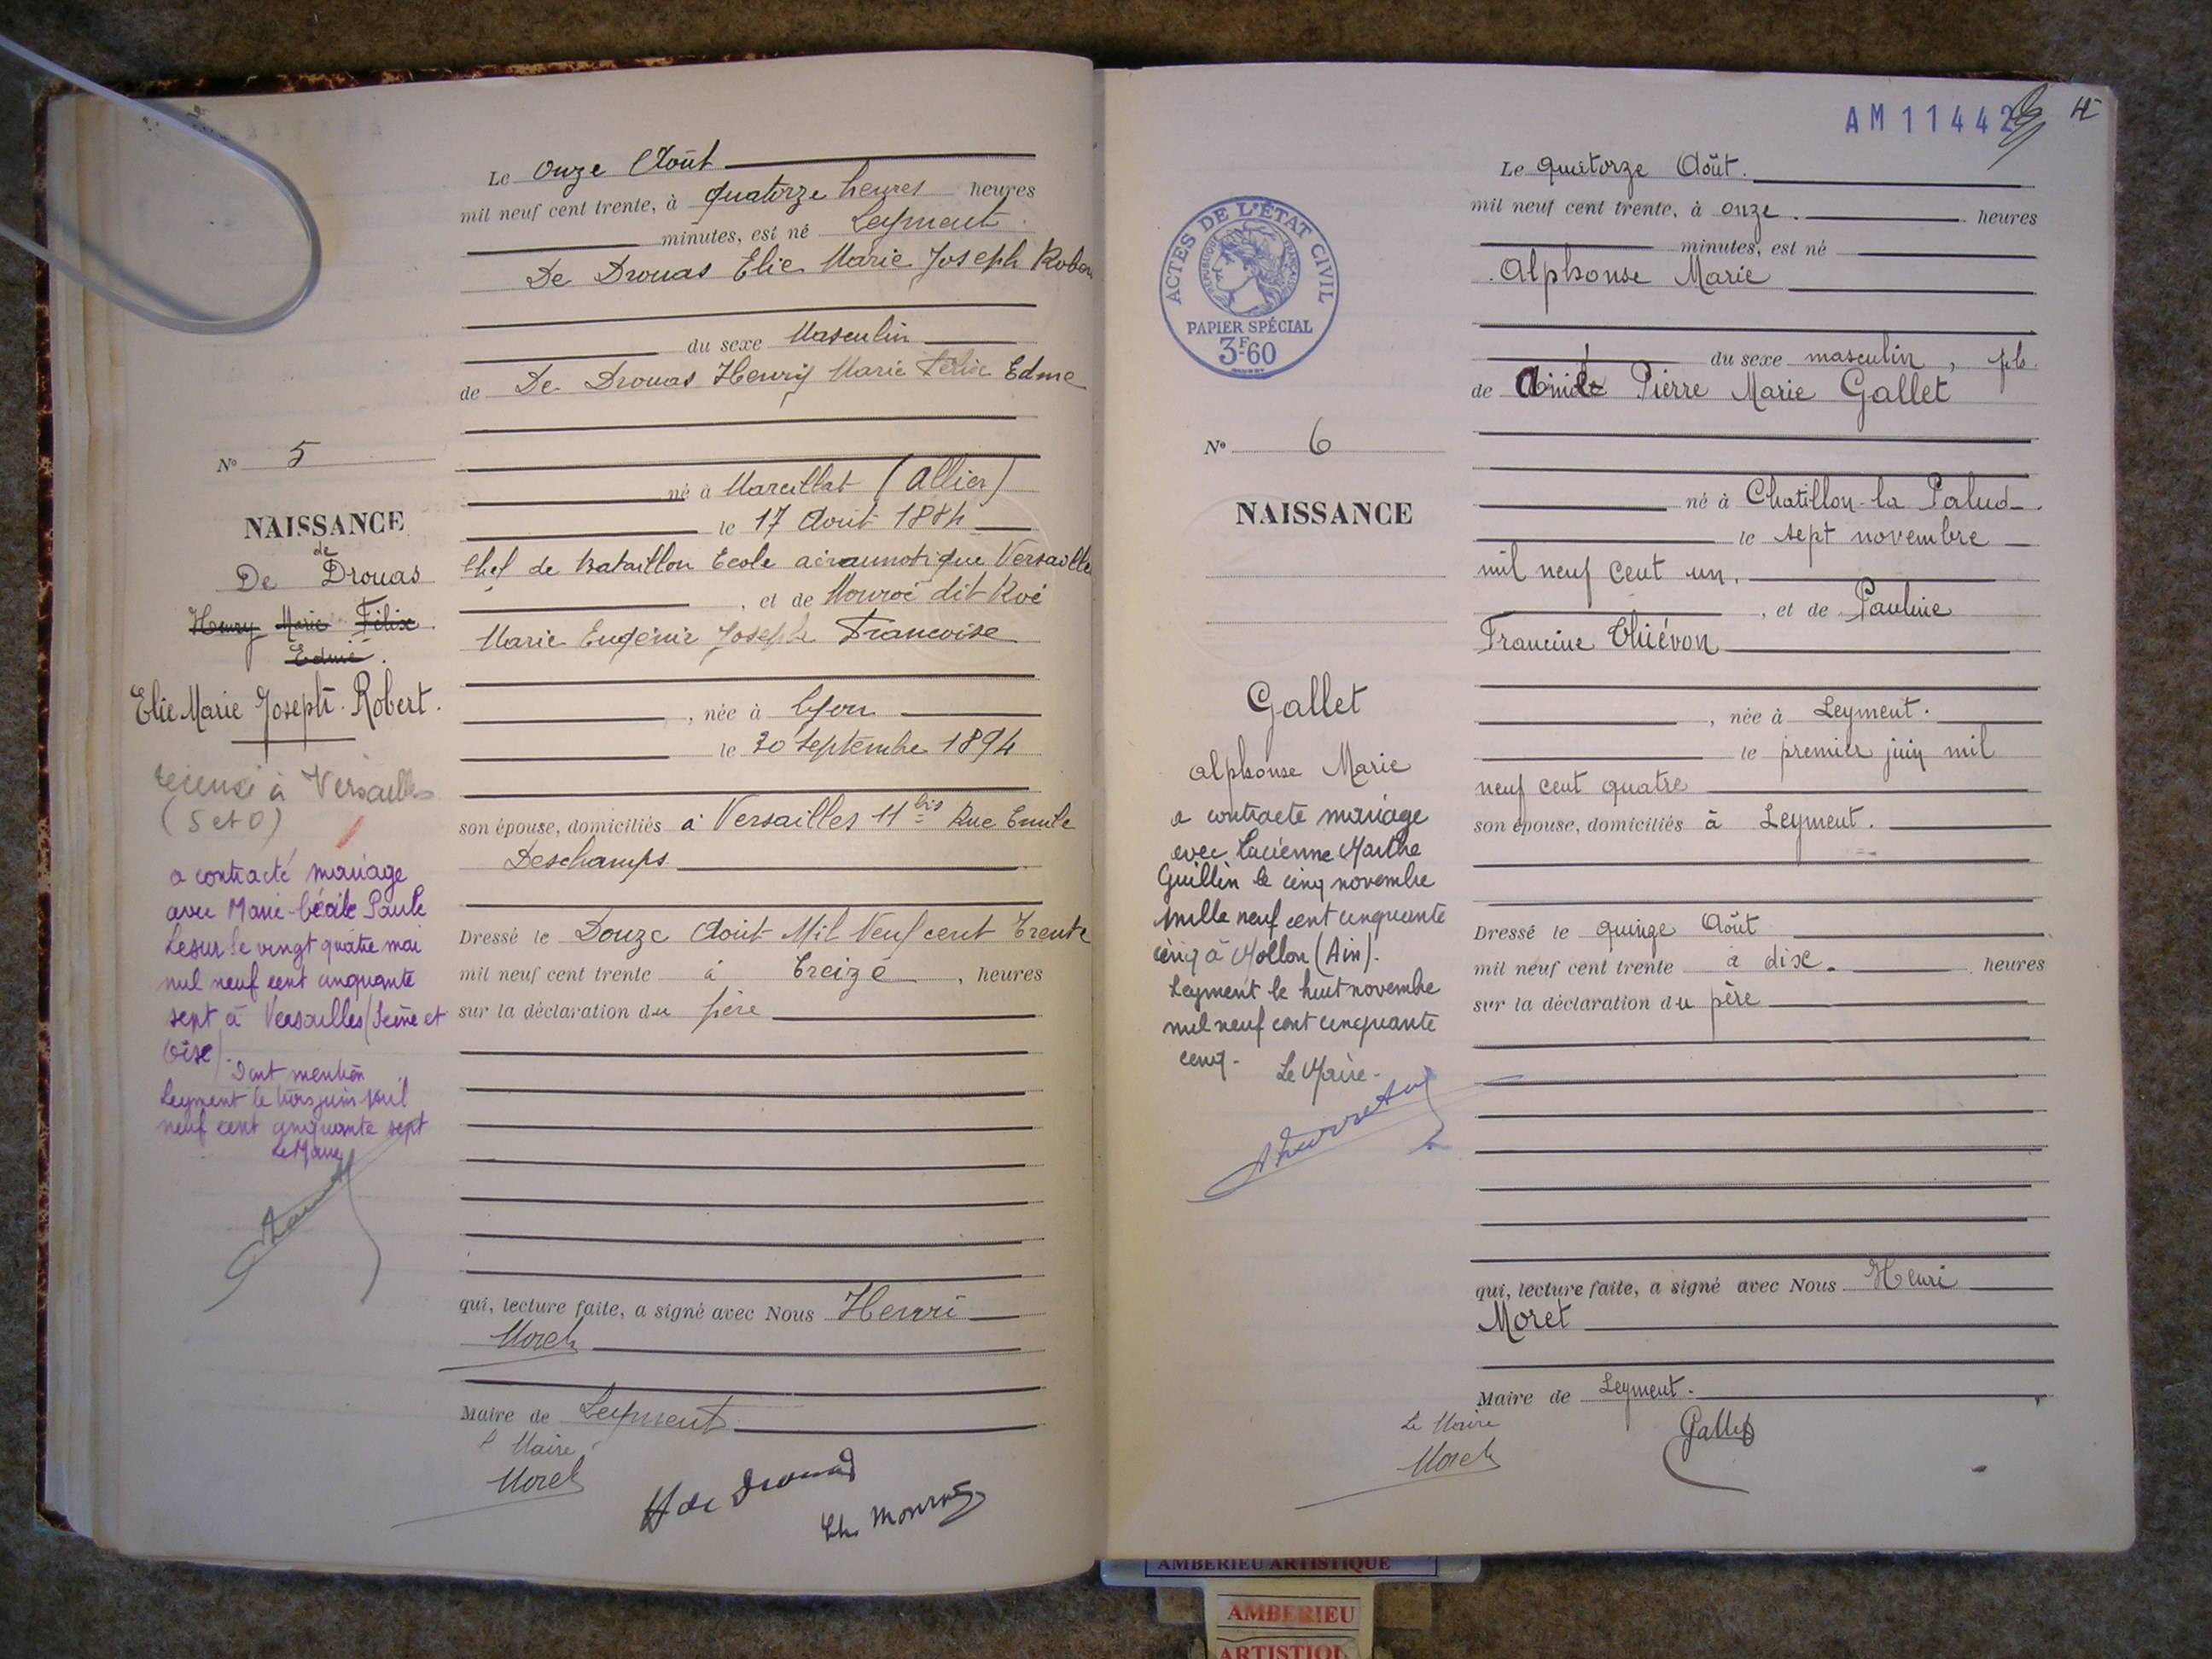 Le Onze Août
mil neuf cent trente, à quatorze heures heures
minutes, est né Leyment.
De Drouas Elie Marie Joseph Rober
du sexe Masculin
de De Drouas Henry Marie Félix Edme
né à Marcillat (Allier)
le 17 Août 1884
Chef de bataillon Ecole Versaille
, et de Mouroé dit Roé
Marie Eugénie Joseph Francoise
, née à Lyon
le 20 septembre 1894
son épouse, domiciliés à Versailles 11 bis Rue Emile
Deschamps
Dressé le Douze Août Mil Neuf cent Trente
mil neuf cent trente à treize, heures
sur la déclaration du père
qui, lecture faite, a signé avec Nous Henri
Moret
Maire de Leyment
Maire
Moret
H de Drouas
N° 5
NAISSANCE
de
De Drouas
Henry Marie Félix
Edme.
Elie Marie Joseph Robert.
recensé à Versailles
(S et O)
a contracté mariage
avec Marie-Cécile Paule
Lesur le vingt quatre mai
mil neuf cent cinquante
sept à Versailles (Seine et
Oise).
Dont mention
Leyment le trois juin mil
neuf cent cinquante sept
Le Maire
AM11442
Le quatorze Août.
mil neuf cent trente, à onze. heures
minutes, est né
Alphonse Marie
du sexe masculin,
de Aimé Pierre Marie Gallet
né à Chatillon-la Palud
le sept novembre
mil neuf cent un.
, et de Pauline
Francine Thiévon
, née à Leyment.
le premier juin mil
neuf cent quatre
son épouse, domiciliés à Leyment.
Dressé le quinze Août
mil neuf cent trente à dix. heures
sur la déclaration du père
qui, lecture faite, a signé avec Nous Henri
Moret
Maire de Leyment.
Le Maire
Moret
Gallet
ACTES DE L'ÉTAT CIVIL
RÉPUBLIQUE FRANÇAISE
PAPIER SPÉCIAL
3F60
N° 6
NAISSANCE
Gallet
Alphonse Marie
a contracté mariage
avec Lucienne Marthe
Guillin le cinq novembre
mille neuf cent cinquante
cinq à Mollon (Ain).
Leyment le huit novembre
mil neuf cent cinquante
cinq.
Le Maire.
AMBERIEU ARTISTIQUE
AMBERIEU